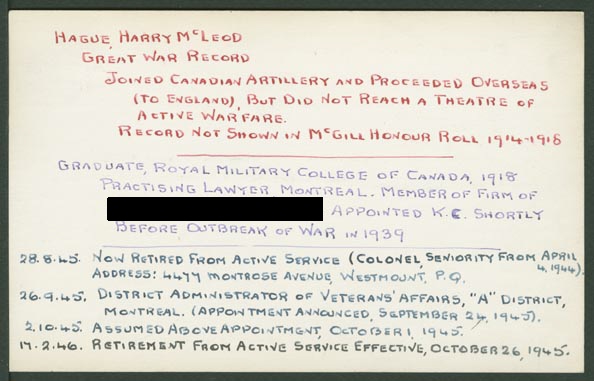 HAGUE, HARRY McLEOD
GREAT WAR RECORD
JOINED CANADIAN ARTILLERY AND PROCEEDED OVERSEAS
(TO ENGLAND), BUT DID NOT REACH A THEATRE OF
ACTIVE WARFARE.
RECORD NOT SHOWN IN McGILL HONOUR ROLL 1914-1918
GRADUATE, ROYAL MILITARY COLLEGE OF CANADA, 1918
PRACTISING LAWYER, MONTREAL. MEMBER OF FIRM OF
APPOINTED K.C. SHORTLY
BEFORE OUTBREAK OF WAR IN 1939
28.8.45. NOW RETIRED FROM ACTIVE SERVICE (COLONEL, SENIORITY FROM APRIL
4, 1944).
ADDRESS: 4477 MONTROSE AVENUE, WESTMOUNT, P.Q.
26.9.45. DISTRICT ADMINISTRATOR OF VETERANS' AFFAIRS, "A" DISTRICT,
MONTREAL. (APPOINTMENT ANNOUNCED, SEPTEMBER 24, 1945).
2.10.45. ASSUMED ABOVE APPOINTMENT, OCTOBER 1, 1945.
17.2.46. RETIREMENT FROM ACTIVE SERVICE EFFECTIVE, OCTOBER 26, 1945.